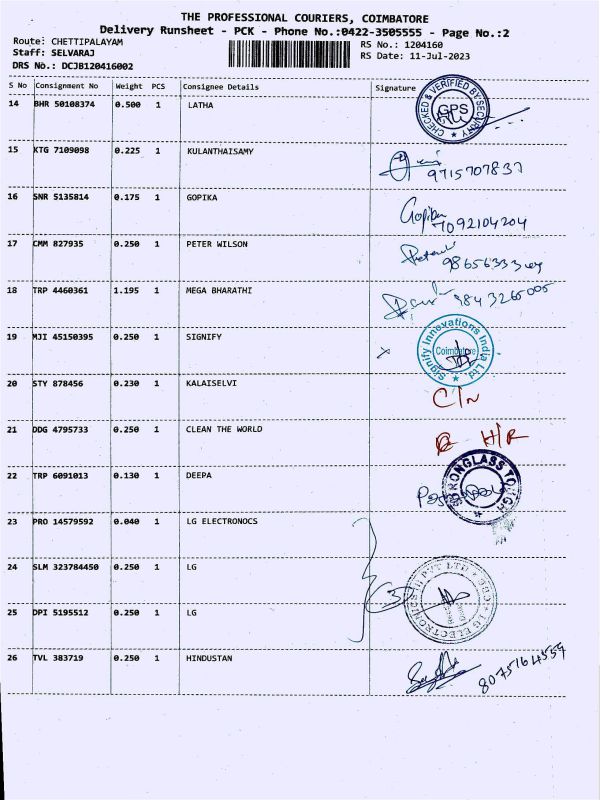 THE PROFESSIONAL COURIERS, COIMBATORE
Delivery Runsheet - PCK - Phone No.:0422-3505555 - Page No.:2
Route: CHETTIPALAYAM
RS No.: 1204160
Staff: SELVARAJ
RS Date: 11-Jul-2023
DRS No.: DCJB120416002
S No Consignment No Weight PCS Consignee Details Signature
14 BHR 50108374 0.500 1 LATHA
CHECKED & VERIFIED BY SECURITY GPS
15 KTG 7109098 0.225 1 KULANTHAISAMY
9715707837
16 SNR 5135814 0.175 1 GOPIKA
Gopika
7092104204
17 CMM 827935 0.250 1 PETER WILSON
18 TRP 4460361 1.195 1 MEGA BHARATHI
9843265005
19 MJI 45150395 0.250 1 SIGNIFY
Signify Innovations India Ltd Coimbatore
20 STY 878456 0.230 1 KALAISELVI
C/N
21 DDG 4795733 0.250 1 CLEAN THE WORLD
H/R
22 TRP 6091013 0.130 1 DEEPA
23 PRO 14579592 0.040 1 LG ELECTRONOCS
24 SLM 323784450 0.250 1 LG
3
LG ELECTRONICS PVT LTD
25 DPI 5195512 0.250 1 LG
26 TVL 383719 0.250 1 HINDUSTAN
8075164559